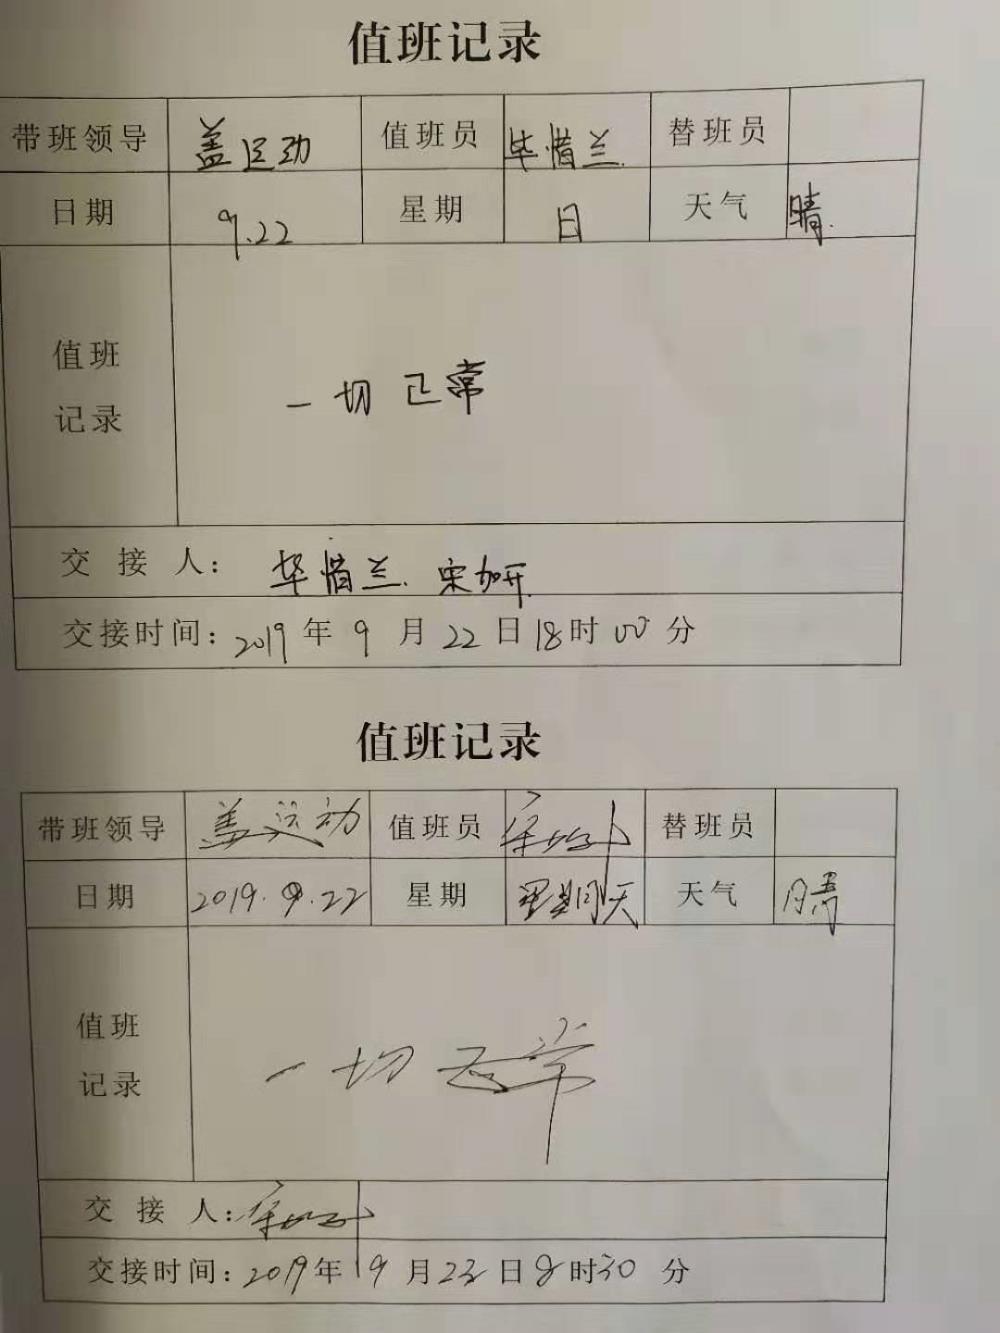 值班记录
带班领导 盖运动 值班员 毕惜兰 替班员
日期 9.22 星期 日 天气 晴
值班
记录
一切正常
交接人: 毕惜兰 宋加开
交接时间: 2019年9月22日18时00分
值班记录
带班领导 盖运动 值班员 替班员
日期 2019.9.22 星期 星期天 天气 晴
值班
记录
一切正常
交接人:
交接时间: 2019年9月23日8时30分